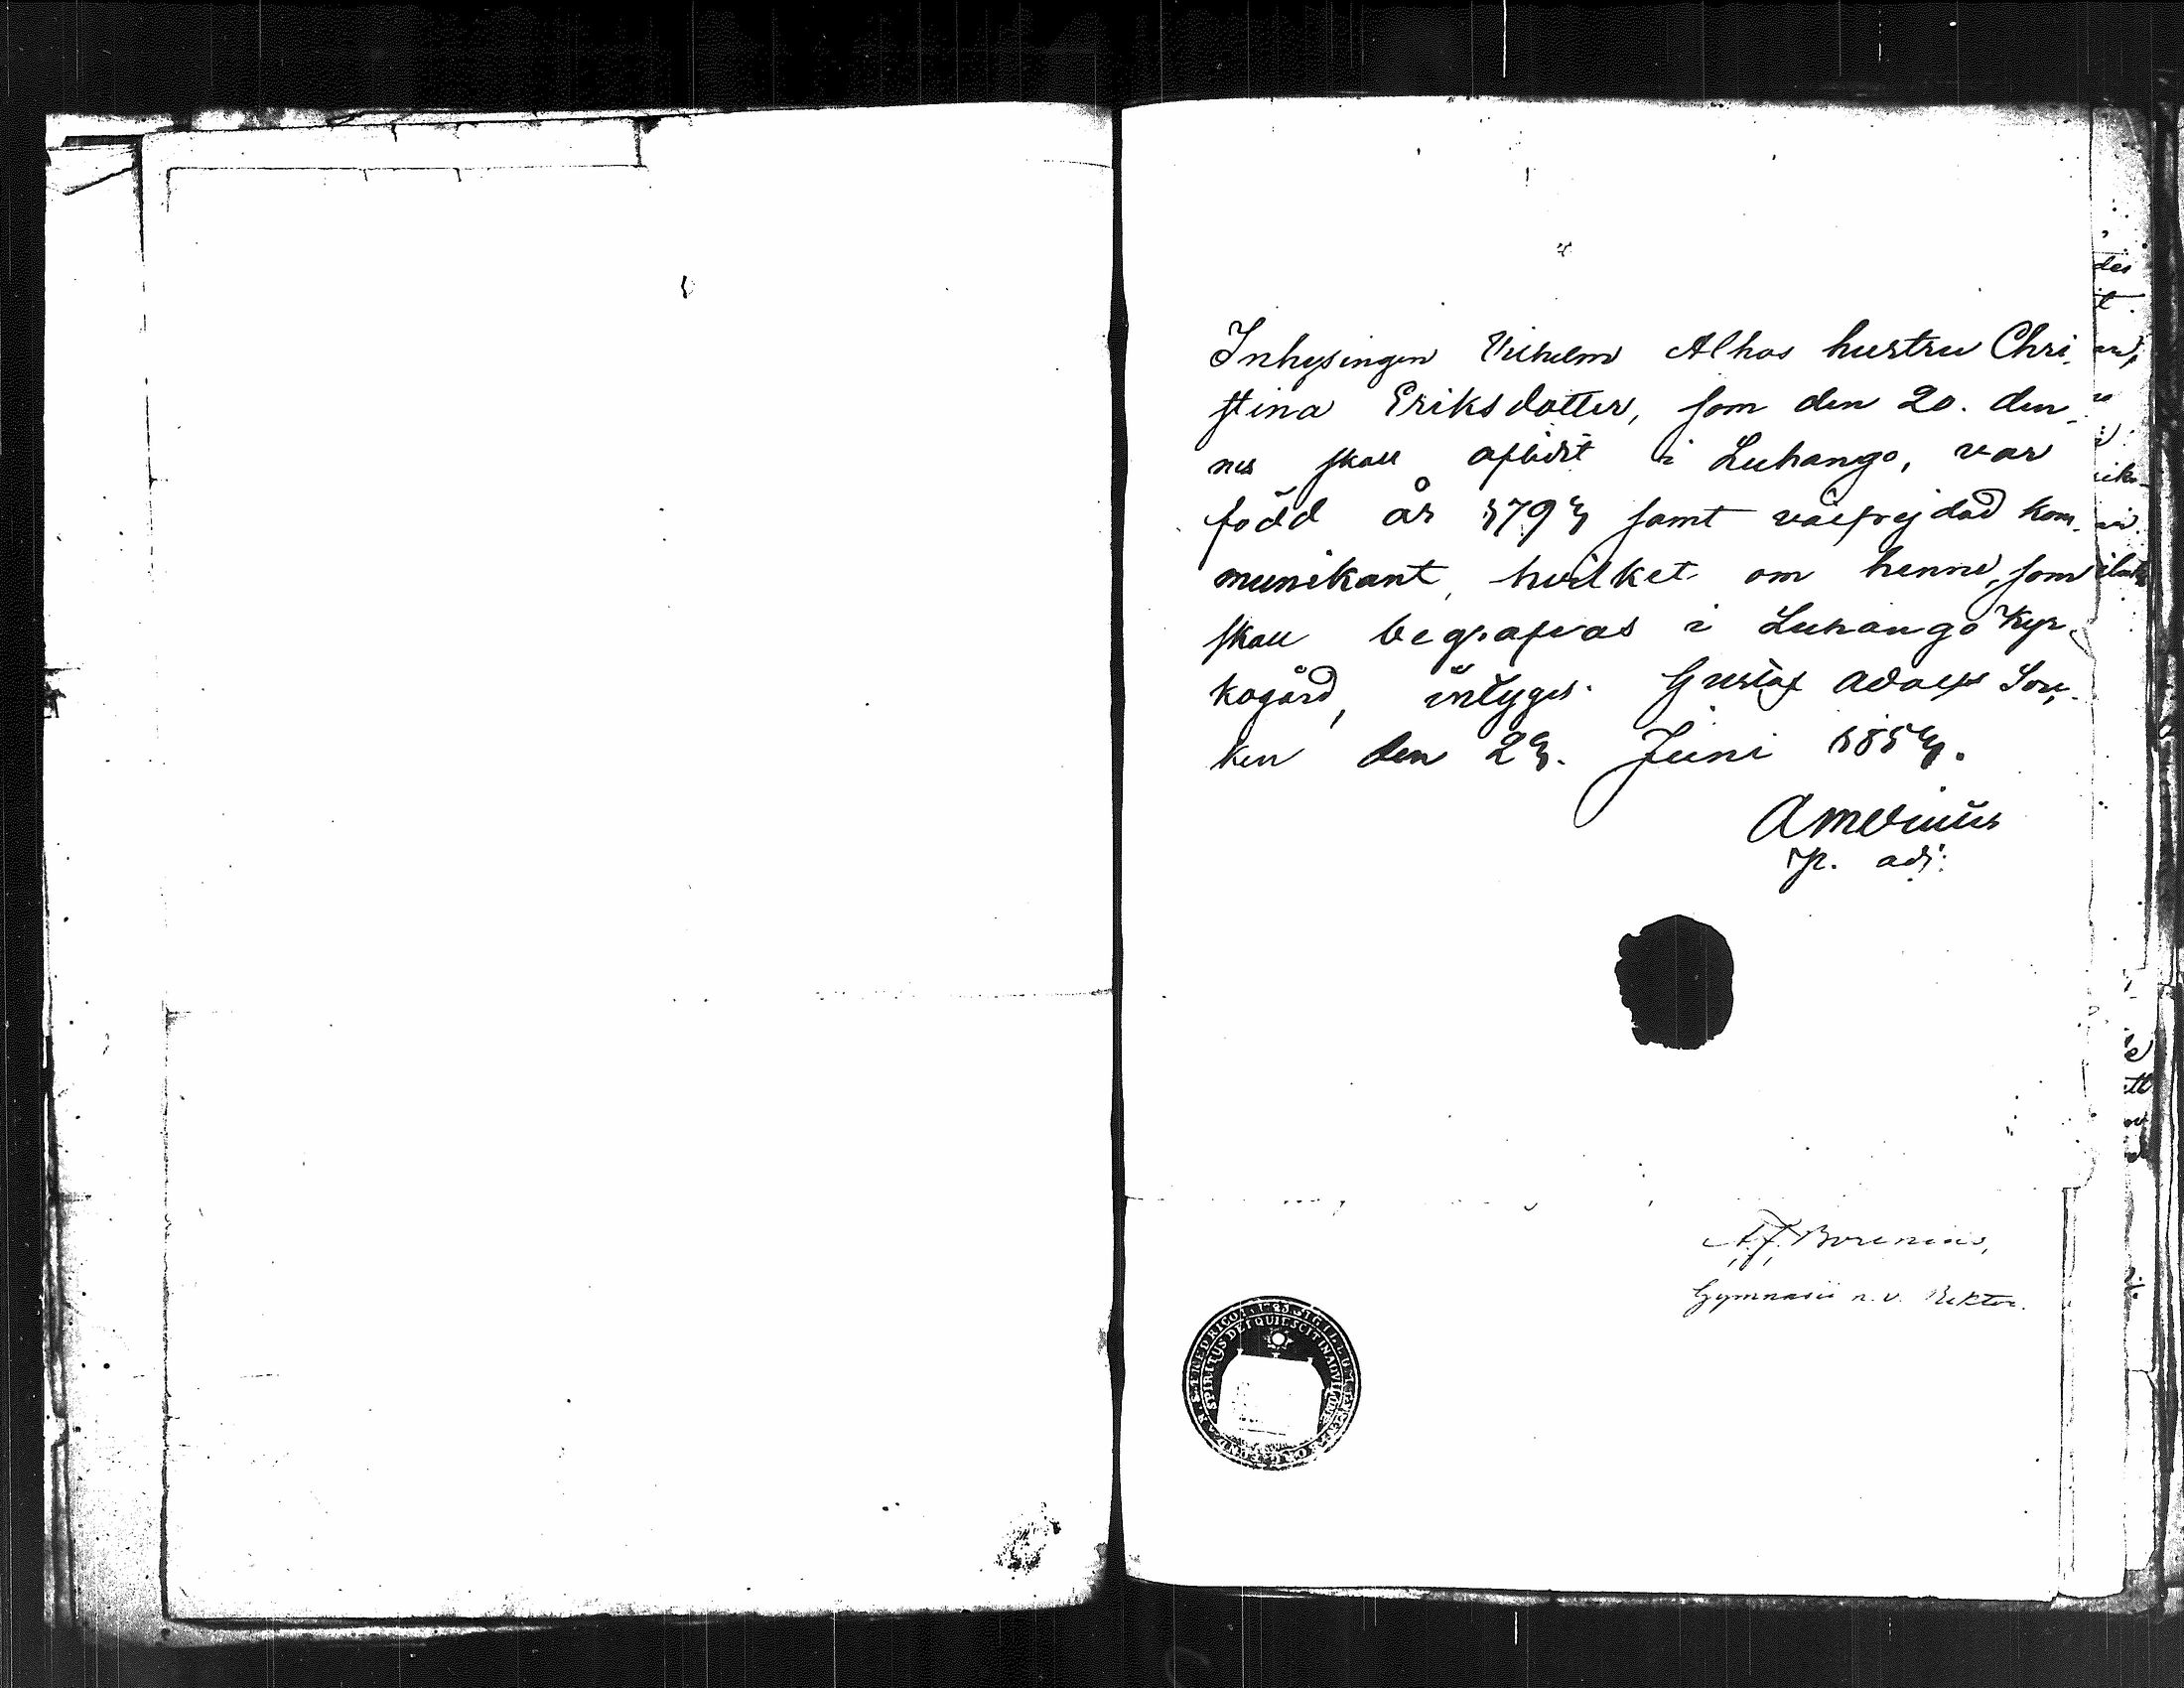 Inhysingen Vilhelm Alhos hustru Chri-
stina Eriksdotter, som den 20. den-
nes skall aflidit i Luhango, var
född år 1794 samt välfrejdad kom-
munikant, hvilket om henne, som
skall begrafvas i Luhango Kyr-
kogård, intygas. Gustaf Adolfs Soc-
ken den 24. Juni 1854.
p. adj:
A. F. Borenius,
Gymnasii n. v. Rektor.
SPIRITUS DEI QUIESCIT IN